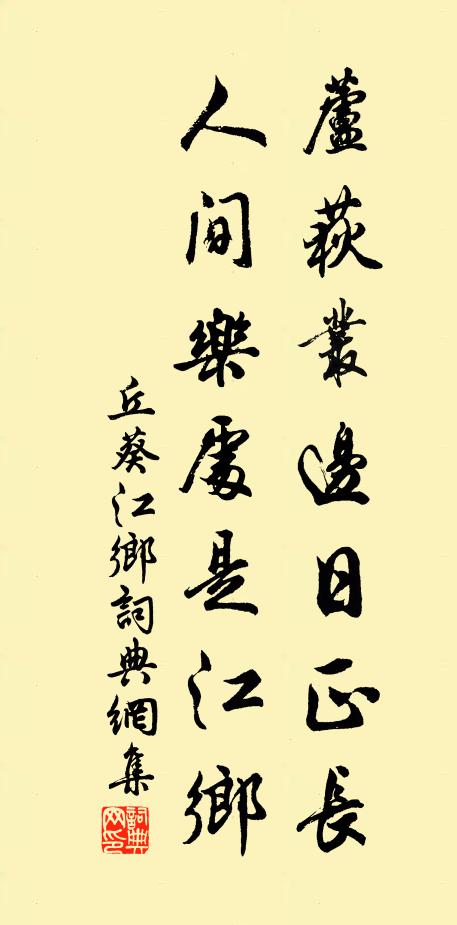 蘆荻叢邊日正長
人间樂處是江鄉
丘葵江鄉詞典網集
詞典网印